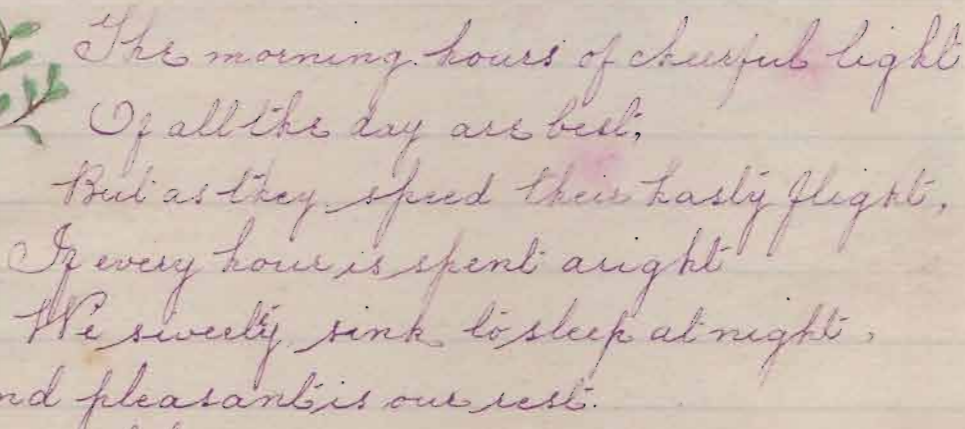 The morning hours of cheerful light
Of all the day are best,
But as they speed their hasty flight,
If every hour is spent aright
We sweetly sink to sleep at night,
nd pleasant is our rest.